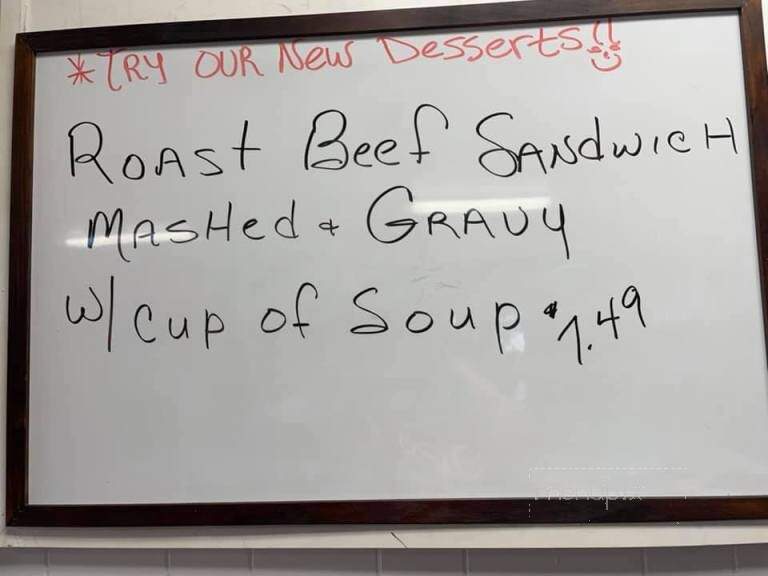 *TRY OUR New Desserts!!
ROAST Beef SANdwicH
MASHed & GRAVY
w/ cup of Soup $7.49